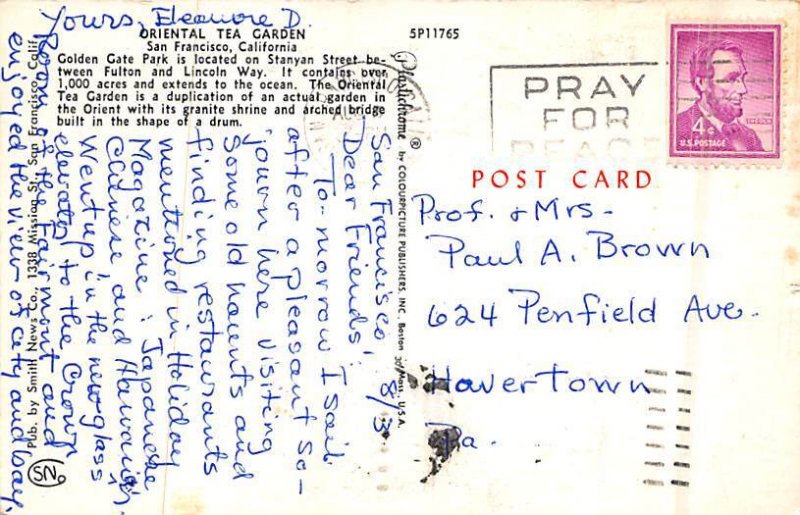 ORIENTAL TEA GARDEN
San Francisco, California
Golden Gate Park is located on Stanyan Street be-
tween Fulton and Lincoln Way. It contains over
1,000 acres and extends to the ocean. The Oriental
Tea Garden is a duplication of an actual garden in
the Orient with its granite shrine and arched bridge
built in the shape of a drum.
5P11765
Pub. by Smith News Co., 1338 Mission St., San Francisco, Calif.
SN
Plastichrome ® by COLOURPICTURE PUBLISHERS, INC. Boston 30, Mass., U.S.A.
San Francisco, 8/3
Dear Friends,
To-morrow I sail
after a pleasant so-
journ here visiting
some old haunts and
finding restaurants
mentioned in Holiday
Magazine: Japanese
Chinese and Hawaiian.
Went up in the new glass
elevator to the Crown
Room of the Fairmont and
enjoyed the view of city and bay.
Yours, Eleanore D.
PRAY
FOR
PEACE
4¢
LINCOLN
U.S. POSTAGE
POST CARD
Prof. & Mrs.
Paul A. Brown
624 Penfield Ave.
Havertown
Pa.